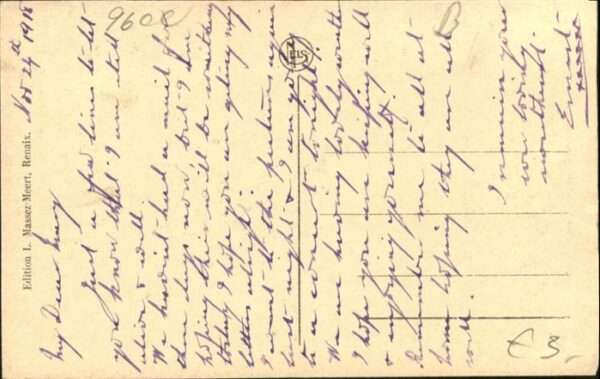 Nov 24th 1918
My Dear Mary
Just a few lines to let
you know that I am still
alive & well
We haven't had a mail for
three days now but I am
hoping there will be something
today. I hope you are getting my
letters alright.
I went to the pictures again
last night & I am going
to a concert tonight.
We are having lovely weather
I hope you are keeping well
& enjoying yourself.
Remember me to all at
home hoping they are all
well.
I remain your
ever loving
Ernest
xxxxx
Edition L. Massez-Meert, Renaix.
960c
B
£3-